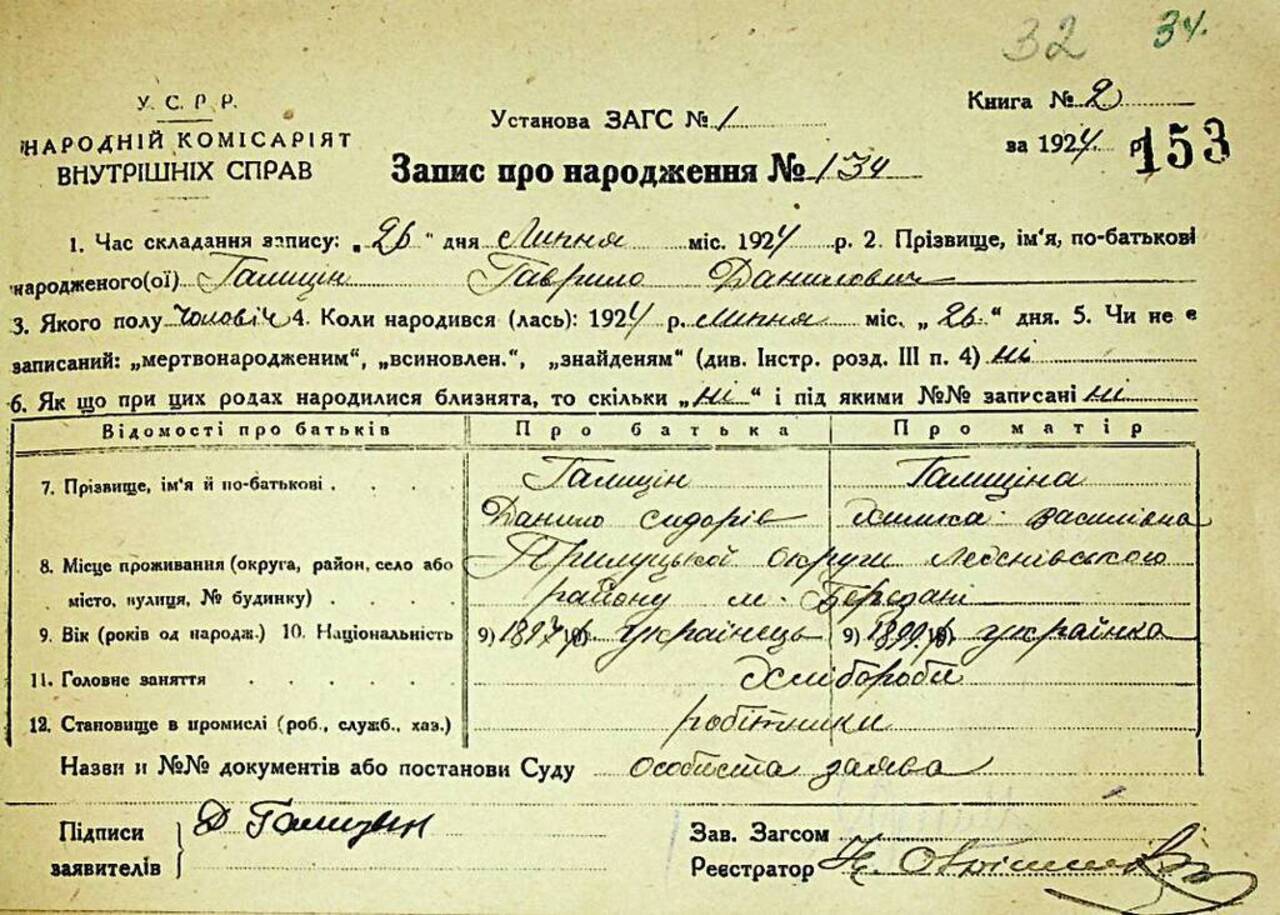 32 34.
У. С. Р. Р.
НАРОДНІЙ КОМІСАРІЯТ
ВНУТРІШНІХ СПРАВ
Установа ЗАГС № 1
Книга № 2
за 1924 р.
153
Запис про народження № 134
1. Час складання запису: „26“ дня Липня міс. 1924 р. 2. Прізвище, ім'я, по-батькові
народженого(ої) Галицін Гаврило Данилович
3. Якого полу чоловіч 4. Коли народився (лась): 1924 р. липня міс. „26“ дня. 5. Чи не є
записаний: „мертвонародженим“, „всиновлен.“, „знайденям“ (див. Інстр. розд. III п. 4) ні
6. Як що при цих родах народилися близнята, то скільки „ні“ і під якими №№ записані ні
Відомості про батьків Про батька Про матір
7. Прізвище, ім'я й по-батькові . . . . Галицін Галиціна
Данило Сидорів Василівна
8. Місце проживання (округа, район, село або Прилуцької округи
місто, вулиця, № будинку) . . . . району м. Березані
9. Вік (років од народж.) 10. Національність 9) 1897 р. українець 9) 1899 р. українка
11. Головне заняття . . . . . . Хлібороби
12. Становище в промислі (роб., служб., хаз.) робітники
Назви и №№ документів або постанови Суду особиста заява
Підписи
заявителів
Д Галицин
Зав. Загсом
Реєстратор